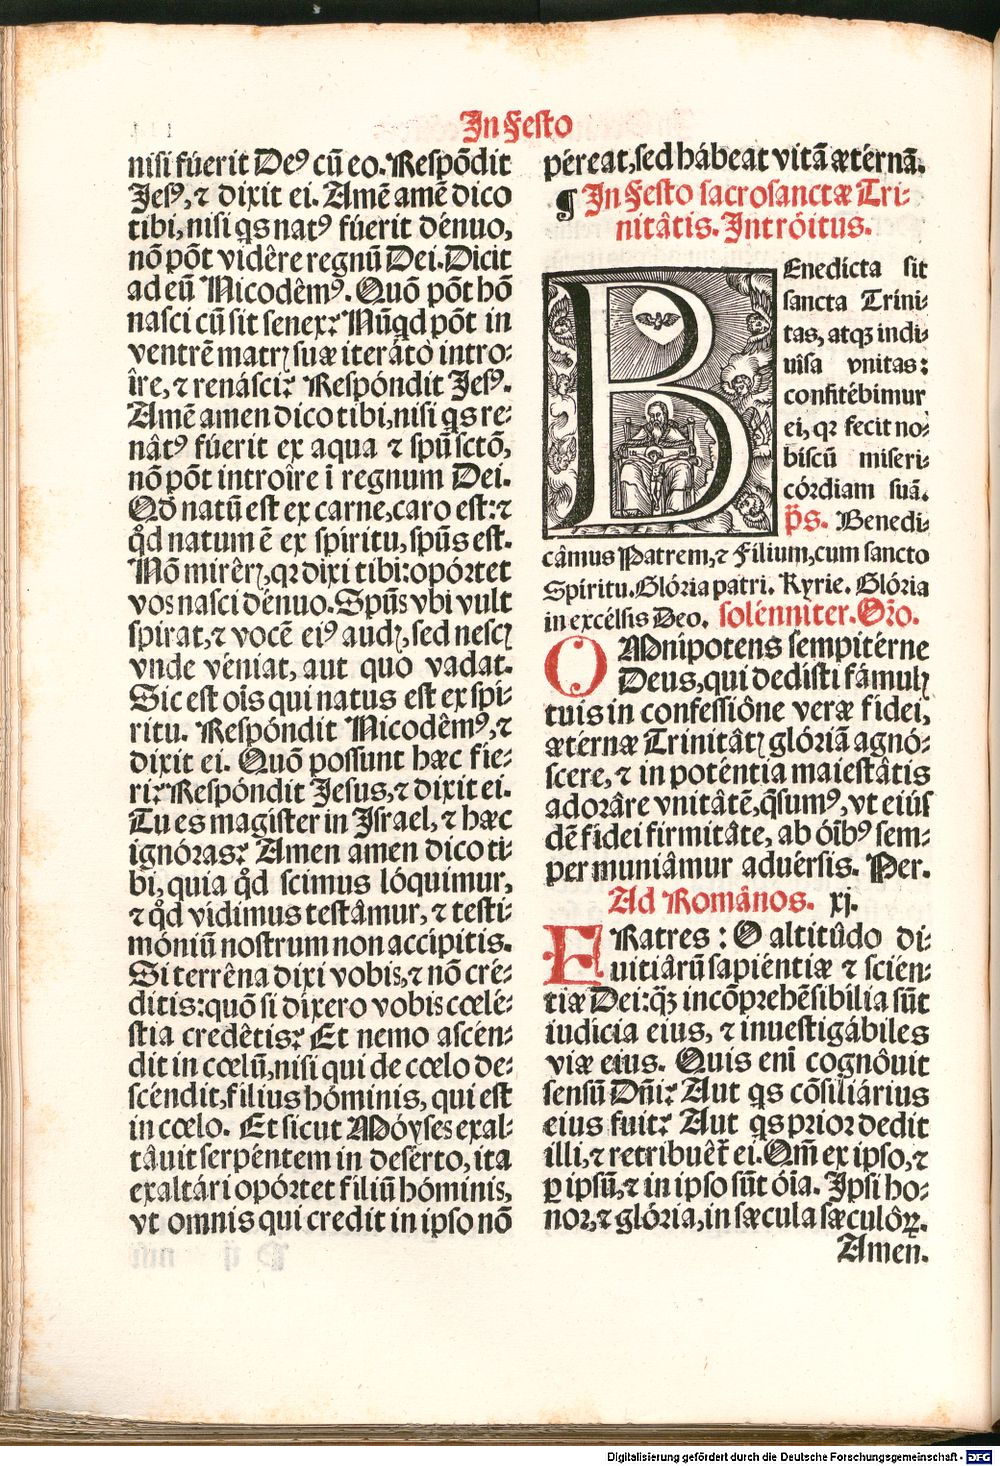 In Festo
nisi fúerit Deꝰ cũ eo. Respõdit
Jesꝰ, ⁊ dixit ei. Amẽ amẽ dico
tibi, nisi qs natꝰ fúerit dénuo,
nõ põt vidêre regnũ Dei. Dicit
ad eũ Nicodêmꝰ. Quõ põt hõ
nasci cũ sit senex? Nũqd põt in
ventrẽ matrꝭ suæ iteráto intro-
îre, ⁊ renásci? Respóndit Jesꝰ.
Amẽ amen dico tibi, nisi qs re-
nâtꝰ fúerit ex aqua ⁊ spũ sctõ,
nõ põt introîre ĩ regnum Dei.
Qd̃ natũ est ex carne, caro est: ⁊
qd̃ natum ẽ ex spiritu, spũs est.
Nõ mirêrꝭ, qꝛ dixi tibi: opórtet
vos nasci dénuo. Spũs vbi vult
spirat, ⁊ vocẽ eiꝰ audꝭ, sed nescꝭ
vnde véniat, aut quo vadat.
Sic est oĩs qui natus est ex spi-
ritu. Respóndit Nicodêmꝰ, ⁊
dixit ei. Quõ possunt hæc fie-
ri? Respóndit Jesus, ⁊ dixit ei.
Tu es magister in Israel, ⁊ hæc
ignóras? Amen amen dico ti-
bi, quia qd̃ scimus lóquimur,
⁊ qd̃ vídimus testâmur, ⁊ testi-
móniũ nostrum non accípitis.
Si terrêna dixi vobis, ⁊ nõ cré-
ditis: quõ si díxero vobis cœlé-
stia credêtis? Et nemo ascen-
dit in cœlũ, nisi qui de cœlo de-
scéndit, filius hóminis, qui est
in cœlo. Et sicut Móyses exal-
tâuit serpéntem in deserto, ita
exaltári opórtet filiũ hóminis,
vt omnis qui credit in ipso nõ
péreat, sed hábeat vitã ætérnã.
¶ In Festo sacrosanctæ Tri-
nitâtis. Intróitus.
BEnedicta sit
sancta Trini-
tas, atqꝫ indi-
uîsa vnitas:
confitébimur
ei, qꝛ fecit no-
biscũ miseri-
córdiam suã.
p̃s. Benedi-
câmus Patrem, ⁊ Filium, cum sancto
Spiritu. Glória patri. Kyrie. Glória
in excélsis Deo. solénniter. Oꝛ̃o.
OMnipotens sempitérne
Deus, qui dedisti fámulꝭ
tuis in confessiône veræ fidei,
ætérnæ Trinitâtꝭ glóriã agnó-
scere, ⁊ in poténtia maiestâtis
adorâre vnitâtẽ, q̃sumꝰ, vt eiús
dẽ fidei firmitâte, ab óĩbꝰ sem-
per muniâmur aduérsis. Per.
Ad Români̊os. xj.
FRatres: O altitûdo di-
uitiârũ sapiéntiæ ⁊ scien-
tiæ Dei: q̃ꝫ incõprehẽsibília sũt
iudícia eius, ⁊ inuestigábiles
viæ eius. Quis eñi cognôuit
sensũ Dñi? Aut qs cõsiliárius
eius fuit? Aut qs prior dedit
illi, ⁊ retribuêt̃ ei. Qm̃ ex ipso, ⁊
ꝑ ipsũ, ⁊ in ipso sũt óĩa. Ipsi ho-
nor, ⁊ glória, in sæcula sæculôꝝ.
Amen.
Digitalisierung gefördert durch die Deutsche Forschungsgemeinschaft - DFG